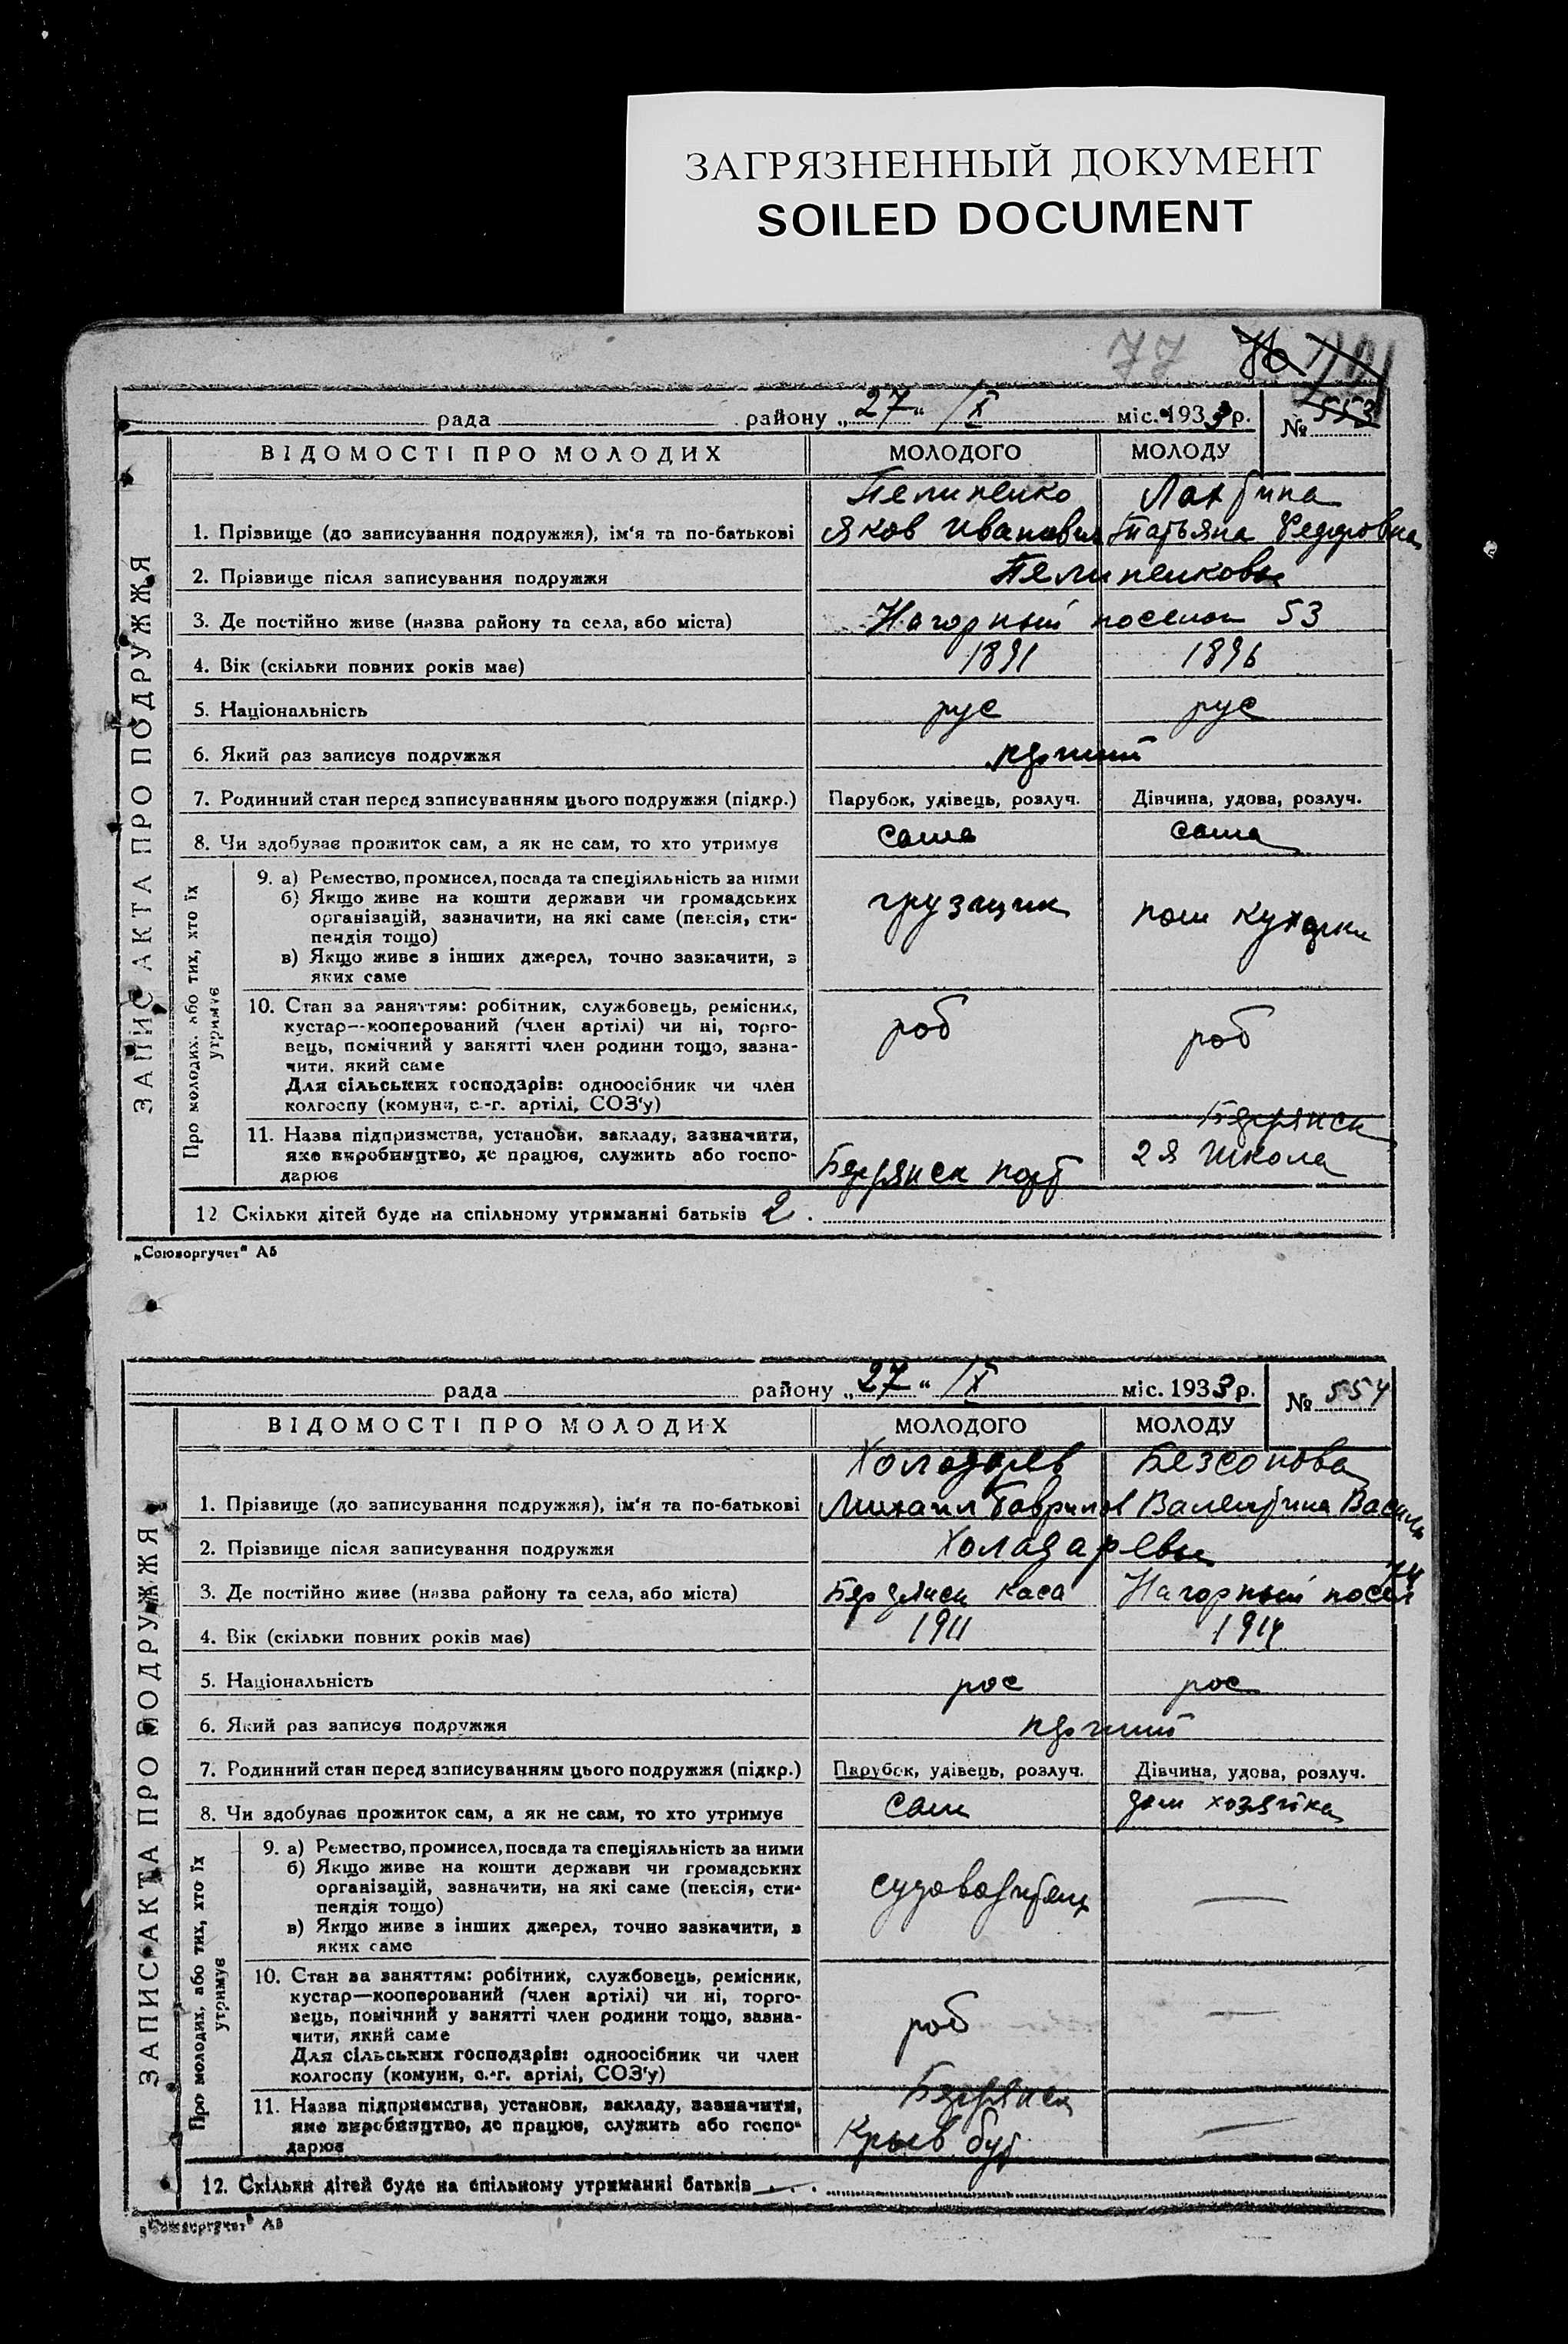 ЗАГРЯЗНЕННЫЙ ДОКУМЕНТ
SOILED DOCUMENT
77 76
рада району „27“ IX міс. 1933 р. № 553
ВІДОМОСТІ ПРО МОЛОДИХ МОЛОДОГО МОЛОДУ
ЗАПИС АКТА ПРО ПОДРУЖЖЯ
Пелипенко
1. Прізвище (до записування подружжя), ім'я та по-батькові Яков Иванович Татьяна Федоровна
2. Прізвище після записування подружжя Пелипенковы
3. Де постійно живе (назва району та села, або міста) Нагорный поселок 53
4. Вік (скільки повних років має) 1891 1896
5. Національність рус рус
6. Який раз записує подружжя
7. Родинний стан перед записуванням цього подружжя (підкр.) Парубок, удівець, розлуч. Дівчина, удова, розлуч.
8. Чи здобуває прожиток сам, а як не сам, то хто утримує сама
Про молодих, або тих, хто їх утримує
9. а) Ремество, промисел, посада та спеціяльність за ними
б) Якщо живе на кошти держави чи громадських
організацій, зазначити, на які саме (пенсія, сти-
пендія тощо)
в) Якщо живе з інших джерел, точно зазначити, з
яких саме
грузщик пом кухарки
10. Стан за заняттям: робітник, службовець, ремісник,
кустар—кооперований (член артілі) чи ні, торго-
вець, помічний у занятті член родини тощо, зазна-
чити, який саме
Для сільських господарів: одноосібник чи член
колгоспу (комуни, с.-г. артілі, СОЗ'у)
роб роб
11. Назва підприємства, установи, закладу, зазначити,
яке виробництво, де працює, служить або госпо-
дарює
Бердянск порт Бердянск
2я школа
12 Скільки дітей буде на спільному утриманні батьків 2.
„Союзоргучет“ А5
рада району „27“ IX міс. 1933 р. № 554
ВІДОМОСТІ ПРО МОЛОДИХ МОЛОДОГО МОЛОДУ
ЗАПИС АКТА ПРО ПОДРУЖЖЯ
Холодарев Безсонова
1. Прізвище (до записування подружжя), ім'я та по-батькові Михаил Гаврилов Валентина Василь
2. Прізвище після записування подружжя Холадаревы
3. Де постійно живе (назва району та села, або міста) Бердянск каса Нагорный посел
4. Вік (скільки повних років має) 1911 1914
5. Національність рос рос
6. Який раз записує подружжя
7. Родинний стан перед записуванням цього подружжя (підкр.) Парубок, удівець, розлуч. Дівчина, удова, розлуч.
8. Чи здобуває прожиток сам, а як не сам, то хто утримує сам дом хозяйка
Про молодих, або тих, хто їх утримує
9. а) Ремество, промисел, посада та спеціяльність за ними
б) Якщо живе на кошти держави чи громадських
організацій, зазначити, на які саме (пенсія, сти-
пендія тощо)
в) Якщо живе з інших джерел, точно зазначити, з
яких саме
10. Стан за заняттям: робітник, службовець, ремісник,
кустар—кооперований (член артілі) чи ні, торго-
вець, помічний у занятті член родини тощо, зазна-
чити, який саме
Для сільських господарів: одноосібник чи член
колгоспу (комуни, с.-г. артілі, СОЗ'у)
роб
11. Назва підприємства, установи, закладу, зазначити,
яке виробництво, де працює, служить або госпо-
дарює
Бердянск
12. Скільки дітей буде на спільному утриманні батьків
„Союзоргучет“ А5